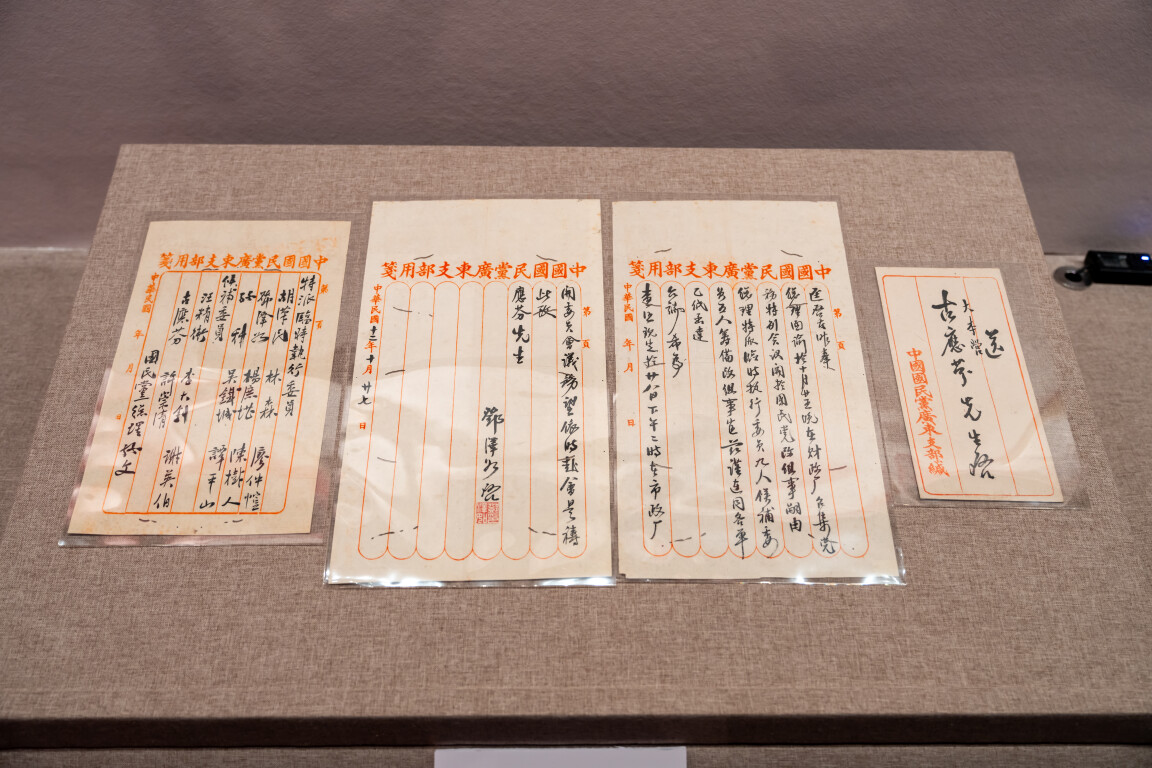 送
大本營
古應芬先生啓
中國國民黨廣東支部緘
中國國民黨廣東支部用箋
第 頁
逕啓者昨奉
總理面諭於十月廿五晚在財政厂召集党
務特別会议關於國民党改組事嗣由
總理特派臨時执行委员九人候補委
员五人籌備改組事宜茲謹連同各單
乙纸送達
台端希爲
查照現定於廿八日下午二時在市政厂
中華民國 年 月 日
中國國民黨廣東支部用箋
第 頁
開委員會議務望依時蒞會是禱
此致
應芬先生
鄧澤如啓
中華民國十二年十月廿七日
中國國民黨廣東支部用箋
第 頁
特派臨時執行委員
胡漢民 林森 廖仲愷
鄧澤如 楊庶堪 陳樹人
孫科 吳鐵城 譚平山
候補委員
汪精衛 李大釗 謝英伯
古應芬 許崇清
國民黨總理孫文
中華民國 年 月 日